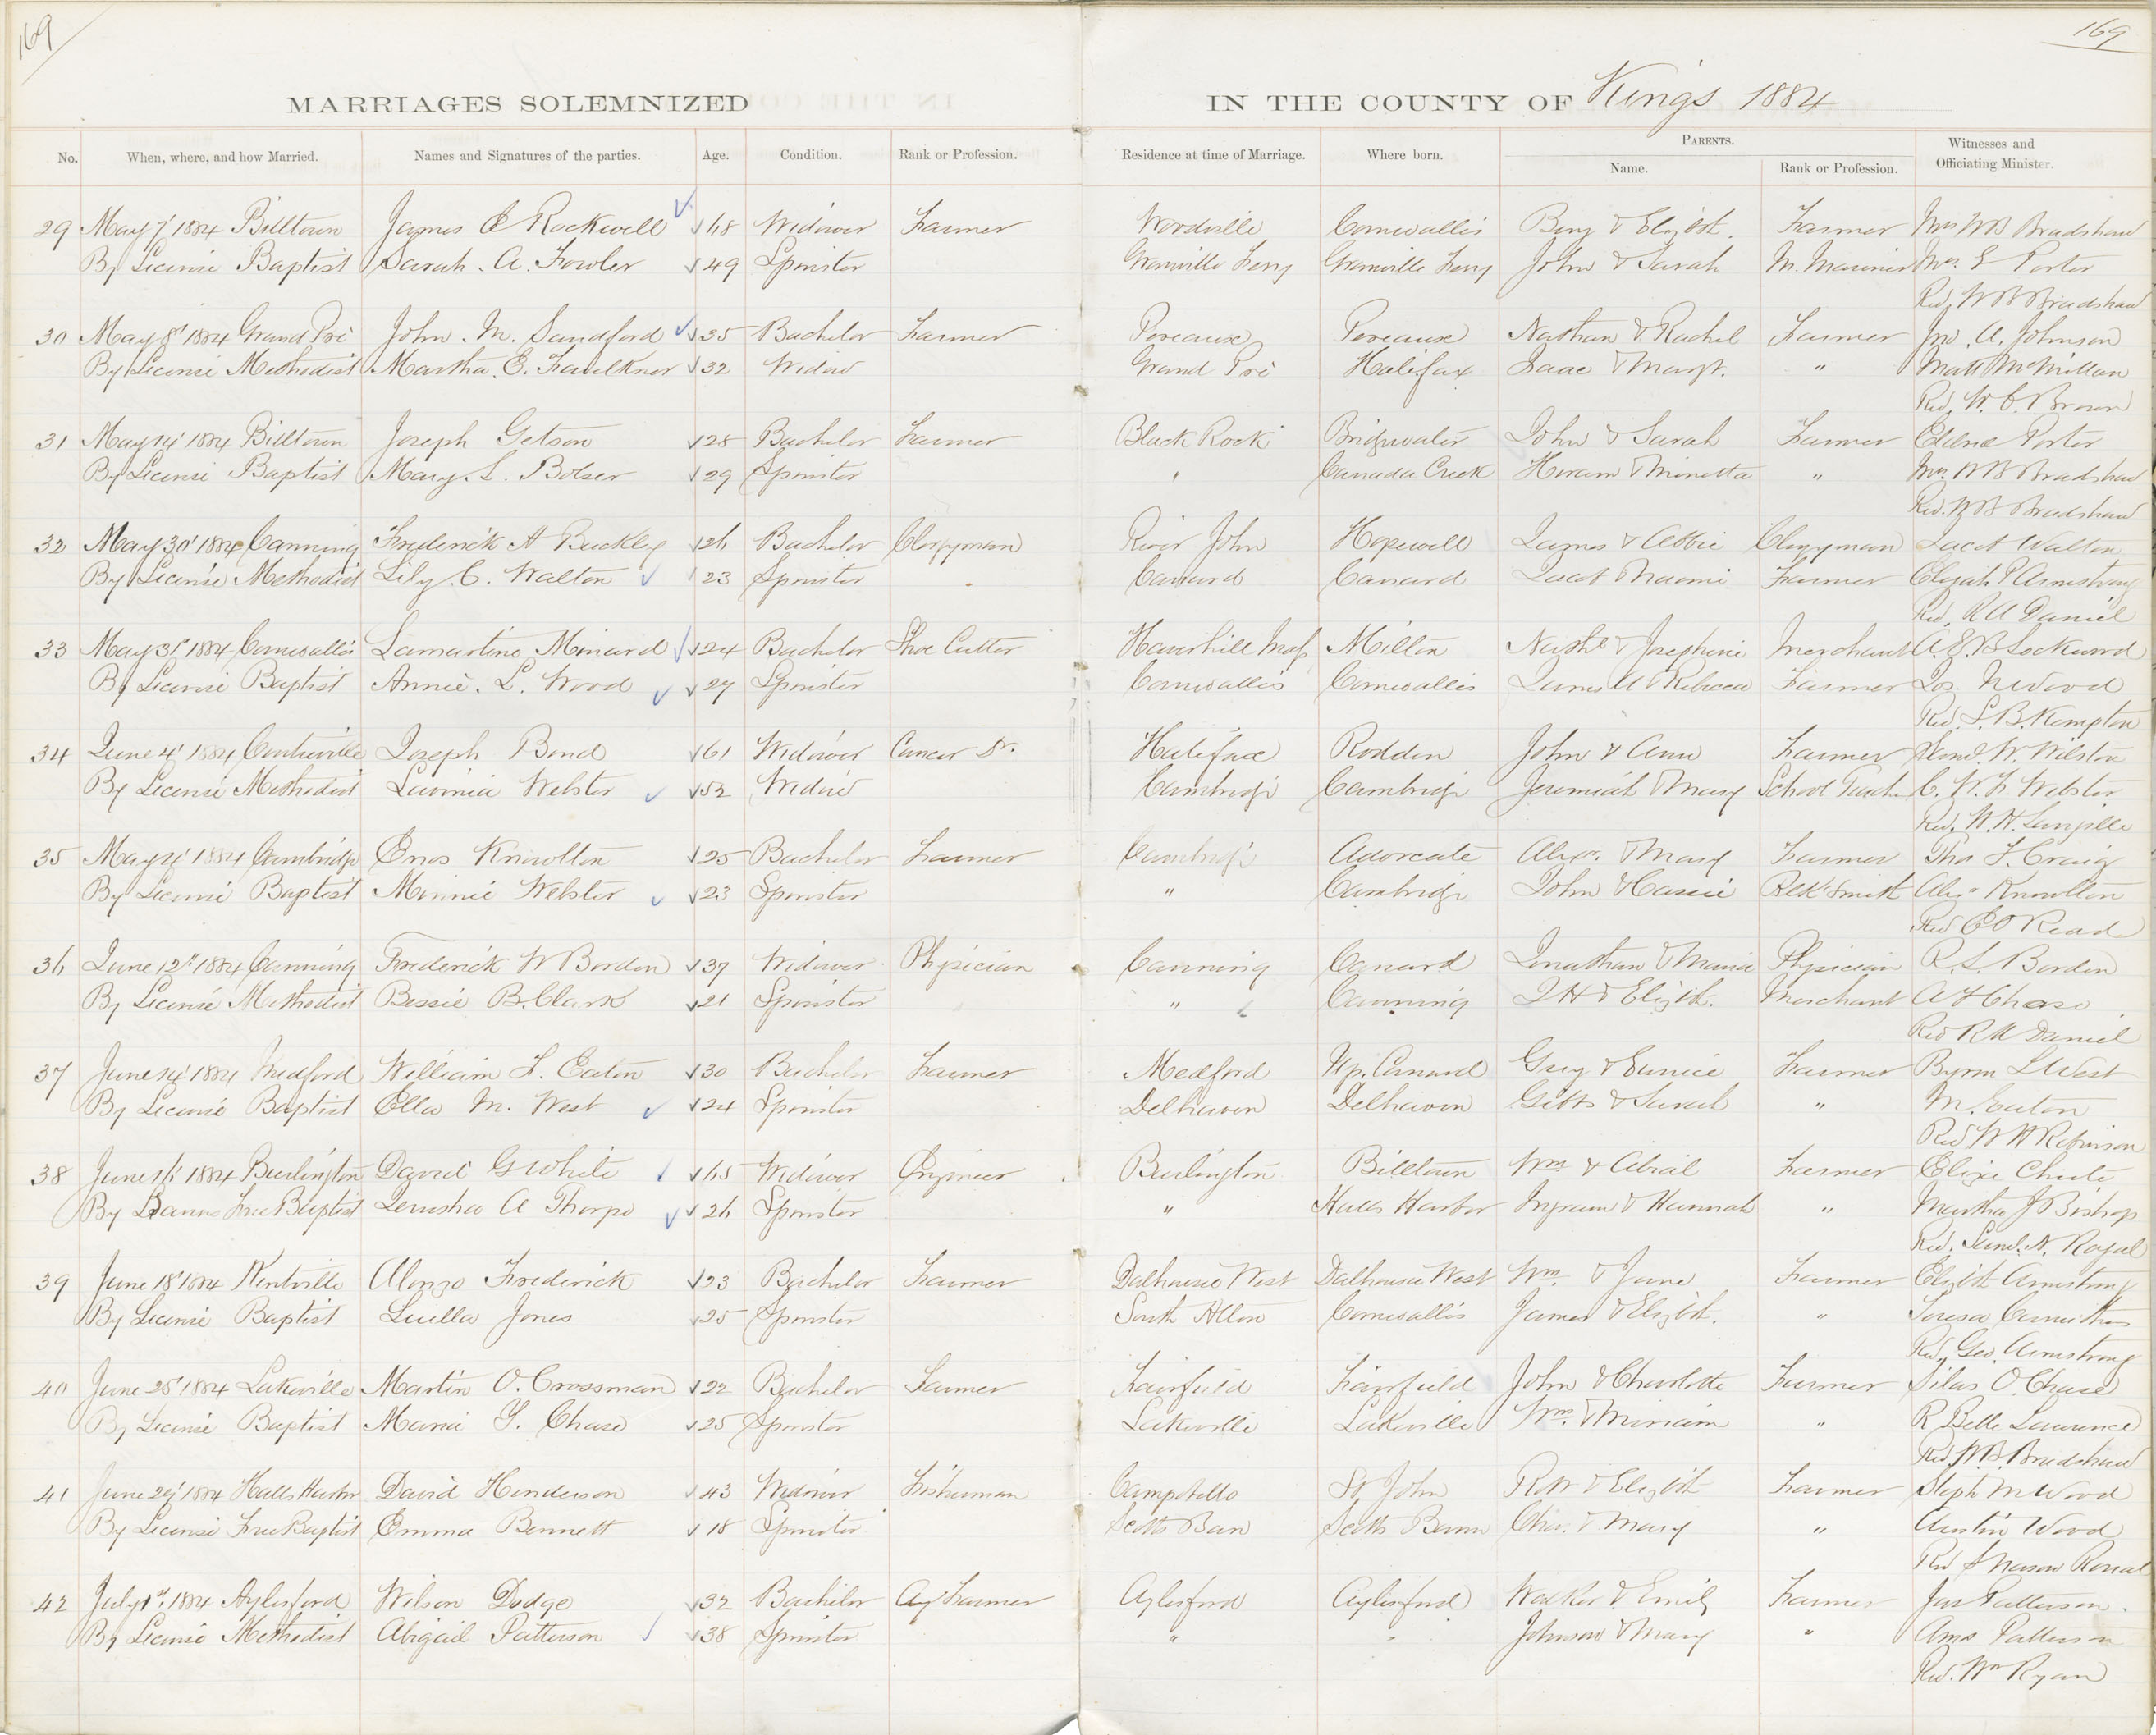 169
169
MARRIAGES SOLEMNIZED IN THE COUNTY OF Kings 1884
No. When, where, and how Married. Names and Signatures of the parties. Age. Condition. Rank or Profession. Residence at time of Marriage. Where born. PARENTS. Name. Rank or Profession. Witnesses and Officiating Minister.
29 May 7' 1884 Billtown James E Rockwell 68 Widower Farmer Woodville Cornwallis Benj & Elizbth. Farmer Mrs WB Bradshaw
By License Baptist Sarah. A. Fowler 49 Spinster Granville Ferry Granville Ferry John & Sarah M. Mariner Mrs. E Porter
Rev. W B Bradshaw
30 May 8th 1884 Grand Pré John. M. Sandford 35 Bachelor Farmer Pereaux Pereaux Nathan & Rachel Farmer Jno. A. Johnson
By License Methodist Martha. E. Faulkner 32 Widow Grand Pré Halifax Isaac & Margt. " Matt McMillan
Rev. W. C. Brown
31 May 14' 1884 Billtown Joseph Getson 28 Bachelor Farmer Black Rock Bridgwater John & Sarah Farmer Porter
By License Baptist Mary. L. Bolser 29 Spinster " Canada Creek Hiram & Minetta " Mrs. W B Bradshaw
Rev. W B Bradshaw
32 May 30' 1884 Canning Frederick A Buckley 26 Bachelor Clergyman River John Hopewell James & Abbie Clergyman Jacob Walton
By License Methodist Lily. C. Walton 23 Spinster Canard Canard Jacob & Naomi Farmer Elizabh P Armstrong
Rev. R A Daniel
33 May 31st 1884 Cornwallis Lamartine Minard 24 Bachelor Shoe Cutter Haverhill Mass Milton Nathl & Josephine Merchant A. E. B Lockwood
By License Baptist Annie. L. Wood 27 Spinster Cornwallis Cornwallis James A & Rebecca Farmer Jos. N Wood
Rev. S. B. Kempton
34 June 4' 1884 Centreville Joseph Bond 61 Widower Cancer Dr. Halifax Rawdon John & Ann Farmer W. Wilston
By License Methodist Lavinia Webster 52 Widow Cambridge Cambridge Jeremiah & Mary School Teach. C. W. F. Webster
Rev. W. H.
35 May 4' 1884 Cambridge Enos Knowlton 25 Bachelor Farmer Cambridge Advocate Alexr. & Mary Farmer Thos F. Craig
By License Baptist Minnie Webster 23 Spinster " Cambridge John & Cassie Blk Smith Alexr Knowlton
Rev E O Read
36 June 12th 1884 Canning Frederick W Borden 37 Widower Physician Canning Canard Jonathan & Maria Physician R. L. Borden
By License Methodist Bessie B. Clark 21 Spinster " Canning J H & Elizbth. Merchant A F Chase
Rev R A Daniel
37 June 14' 1884 Medford William F. Eaton 30 Bachelor Farmer Medford Up. Canard Guy & Eunice Farmer Byron L West
By License Baptist Ella M. West 24 Spinster Delhaven Delhaven Gibbs & Sarah " M. Eaton
Rev W H Robinson
38 June 16' 1884 Burlington David G White 65 Widower Engineer Burlington Billtown Wm. & Abial Farmer Eliza Chute
By Banns Free Baptist Jerusha A Thorpe 26 Spinster " Halls Harbor Ingram & Hannah " Martha J Bishop
Rev. Saml. N. Royal
39 June 18' 1884 Kentville Alonzo Frederick 23 Bachelor Farmer Dalhousie West Dalhousie West Wm. & Jane Farmer Elizbth Armstrong
By License Baptist Luella Jones 25 Spinster South Alton Cornwallis James & Elizbth. " Teresa
Rev. Geo. Armstrong
40 June 25' 1884 Lakeville Martin O. Crossman 22 Bachelor Farmer Fairfield Fairfield John & Charlotte Farmer Silas O. Chase
By License Baptist Maria Y. Chase 25 Spinster Lakeville Lakeville Wm. & Miriam " R Belle Lawrence
Rev. W. B. Bradshaw
41 June 29' 1884 Halls Harbor David Henderson 43 Widower Fisherman Campobello St John Robt & Elizbth Farmer Steph M Wood
By License Free Baptist Emma Bennett 18 Spinster Scotts Bay Chas. & Mary " Austin Wood
Rev S Nason Royal
42 July 1st. 1884 Aylesford Wilson Dodge 32 Bachelor Farmer Aylesford Aylesford Walker & Emily Farmer Jas Patterson.
By License Methodist Abigail Patterson 38 Spinster " " Johnson & Mary " Amos Patterson
Rev. Wm Ryan